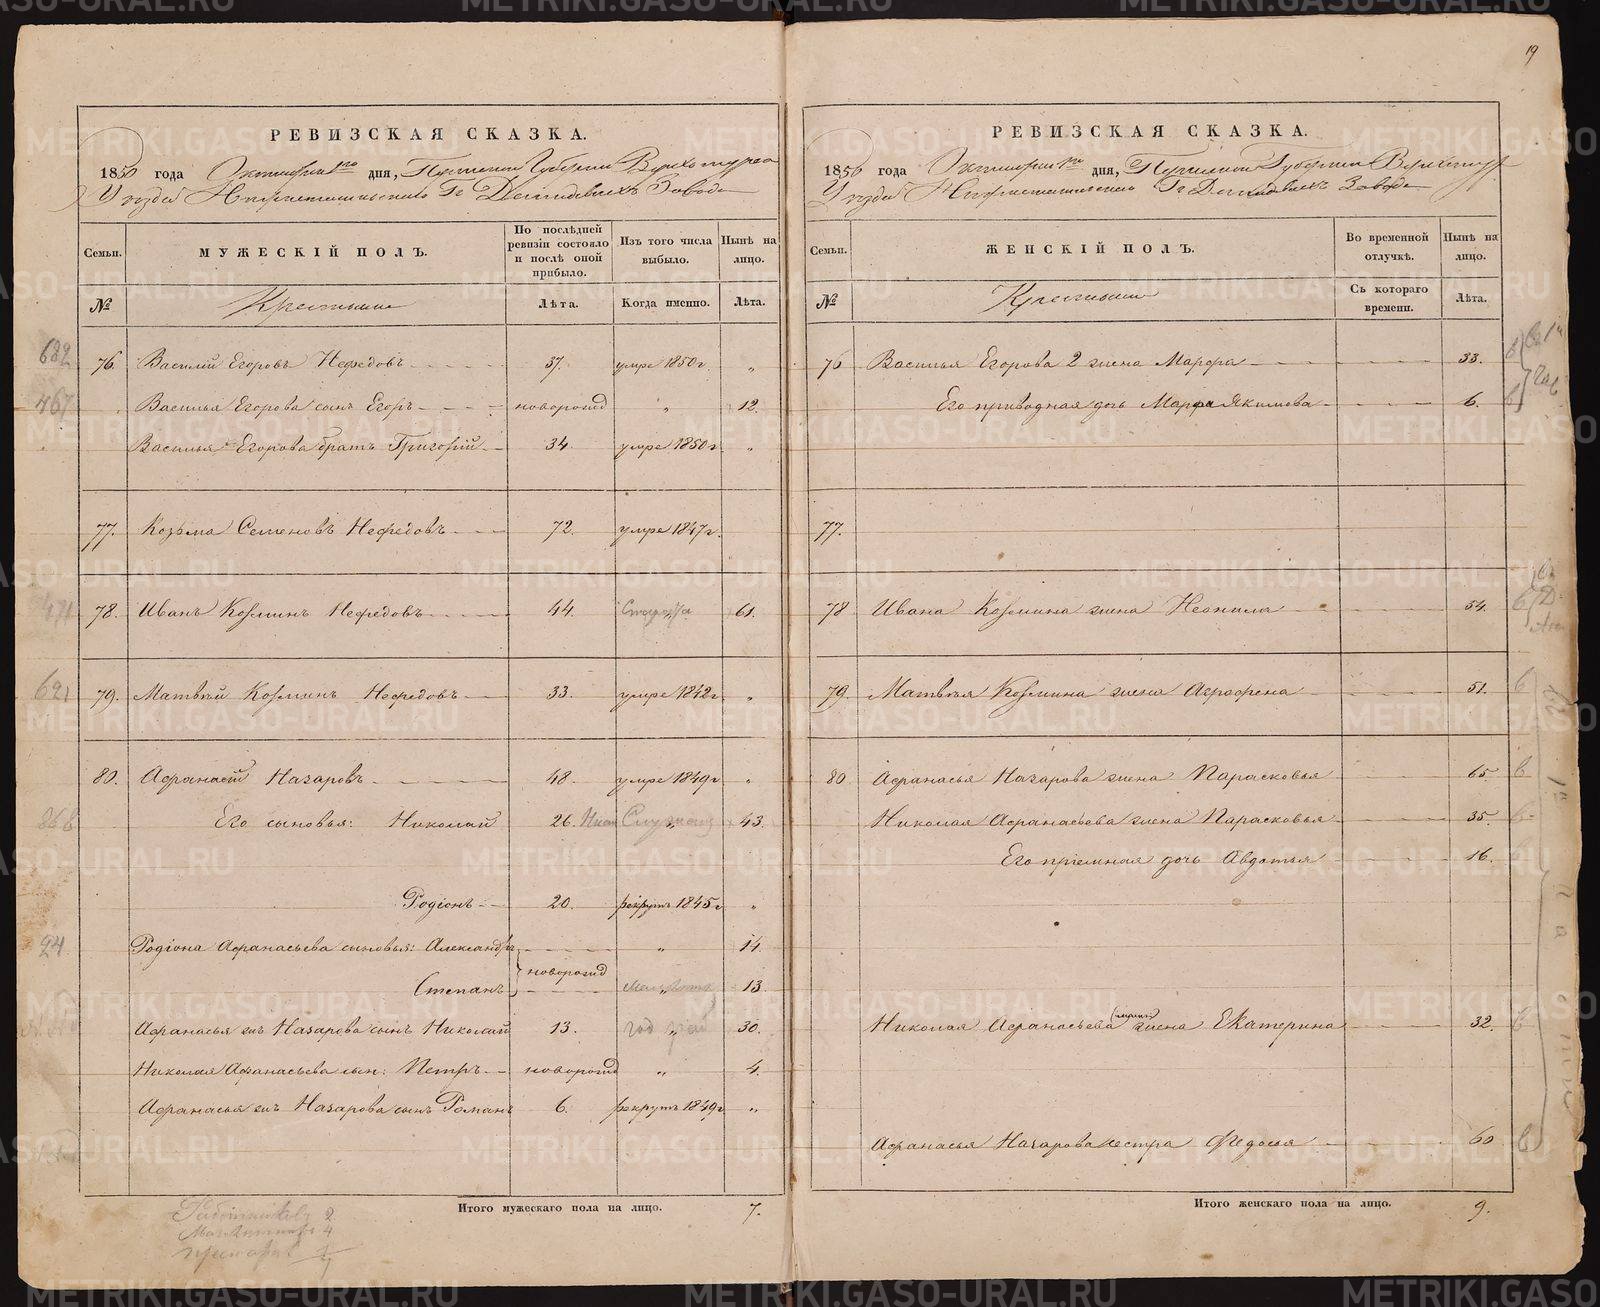 19
РЕВИЗСКАЯ СКАЗКА.
1850 года Октября 1го дня, Пермской Губернии Верхотурска
Уезда Нижнетагильскаго Гг Демидовыхъ Завода
Семьи. МУЖЕСКІЙ ПОЛЪ. По послѣдней ревизіи состояло и послѣ оной прибыло. Изъ того числа выбыло. Нынѣ на лицо.
№ Крестьяне Лѣта. Когда именно. Лѣта.
682 76. Василій Егоровъ Нефедовъ 37. умре 1850 г. "
467 Василья Егорова сынъ Егоръ новорожд " 12.
Василья Егорова братъ Григорій 34. умре 1850 г "
77. Козьма Семеновъ Нефедовъ 72. умре 1847 г.
78. Иванъ Козминъ Нефедовъ 44. 61.
691 79. Матвѣй Козминъ Нефедовъ 33. умре 1842 г "
80. Афанасій Назаровъ 48. умре 1849 г "
868 Его сыновья: Николай 26. " 43.
Родіонъ 20. рекрутъ 1845 г "
24 Родіона Афанасьева сыновья: Александръ " 14
новорожд
Степанъ " 13
Афанасья же Назарова сынъ Николай 13. 30.
Николая Афанасьева сын: Петръ новорожд " 4.
Афанасья же Назарова сынъ Романъ 6. рекрутъ 1849 г "
Итого мужескаго пола на лицо. 7.
2
4
РЕВИЗСКАЯ СКАЗКА.
1850 года Октября 1го дня, Пермской Губерніи Верхотур
Уезда Нижнетагильскаго Гг Демидовыхъ Завода
Семьи. ЖЕНСКІЙ ПОЛЪ. Во временной отлучкѣ. Нынѣ на лицо.
№ Крестьяне Съ котораго времени. Лѣта.
76 Василья Егорова 2 жена Марфа 33.
Его приводная дочь Марфа Якимова 6.
77.
78 Ивана Козмина жена Неонила 54.
79. Матвѣя Козмина жена Аграфена 51.
80 Афанасья Назарова жена Парасковья 65
Николая Афанасьева жена Парасковья 35.
Его пріемная дочь Авдотья 16.
Николая Афанасьева жена Екатерина 32.
Афанасья Назарова сестра Федосья 60
Итого женскаго пола на лицо. 9.
METRIKI.GASO-URAL.RU